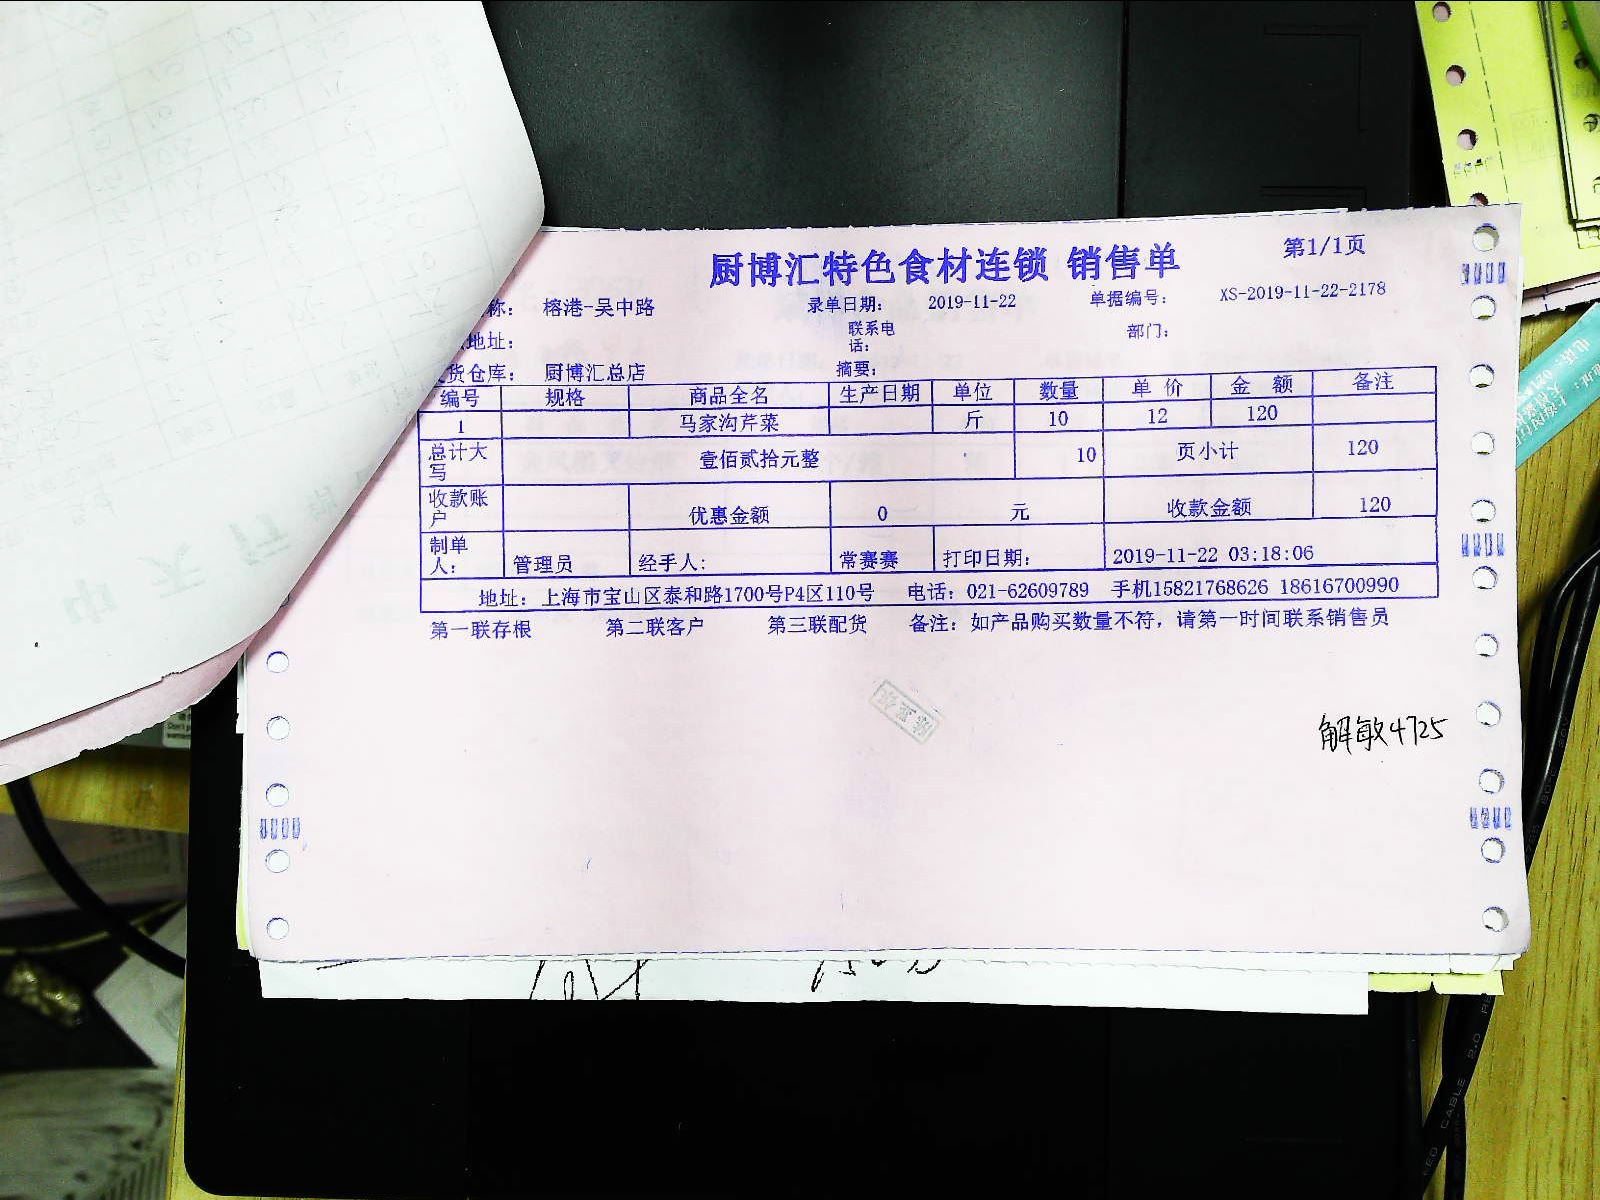 厨博汇特色食材连锁 销售单
第1/1页
称： 榕港-吴中路 录单日期： 2019-11-22 单据编号： XS-2019-11-22-2178
地址： 联系电话： 部门：
货仓库： 厨博汇总店 摘要：
编号 规格 商品全名 生产日期 单位 数量 单价 金额 备注
1 马家沟芹菜 斤 10 12 120
总计大写 壹佰贰拾元整 10 页小计 120
收款账户 优惠金额 0 元 收款金额 120
制单人： 管理员 经手人： 常赛赛 打印日期： 2019-11-22 03:18:06
地址：上海市宝山区泰和路1700号P4区110号 电话：021-62609789 手机15821768626 18616700990
第一联存根 第二联客户 第三联配货 备注：如产品购买数量不符，请第一时间联系销售员
解敏4725